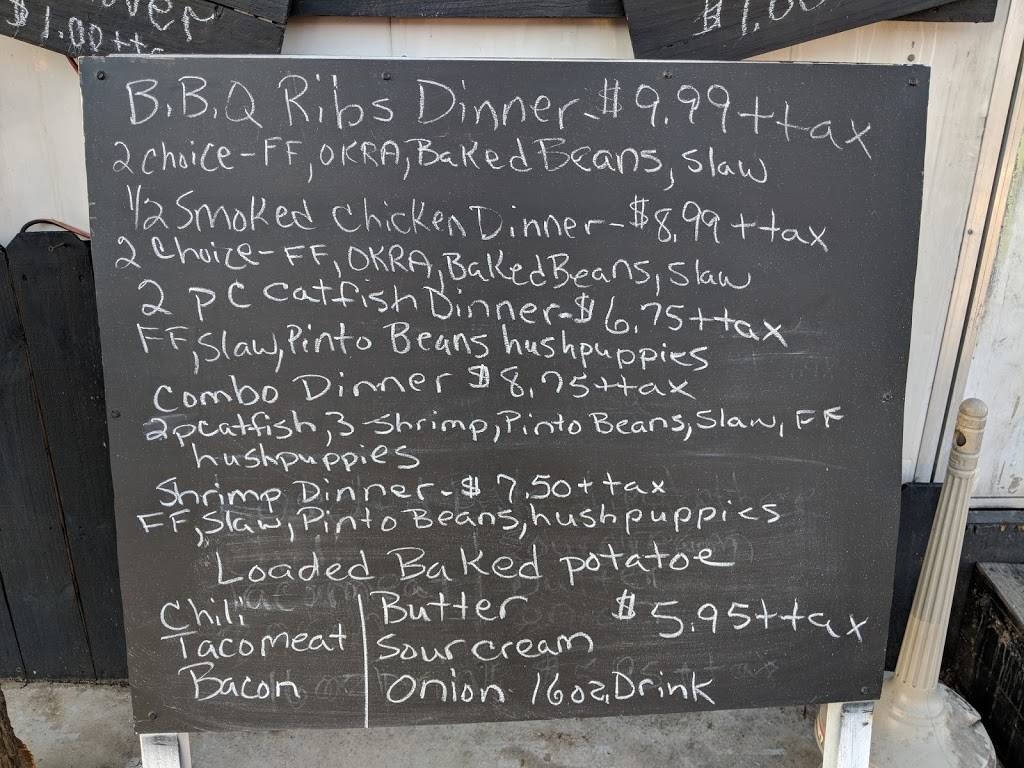 $1.00 + ta
$1.00
B.B.Q Ribs Dinner - $9.99 + tax
2 choice - FF, OKRA, Baked Beans, Slaw
1/2 Smoked Chicken Dinner - $8.99 + tax
2 Choice - FF, OKRA, Baked Beans, Slaw
2 pc catfish Dinner - $6.75 + tax
FF, Slaw, Pinto Beans hushpuppies
Combo Dinner $8.75 + tax
2pcatfish, 3-Shrimp, Pinto Beans, Slaw, FF
hushpuppies
Shrimp Dinner - $7.50 + tax
FF, Slaw, Pinto Beans, hushpuppies
Loaded Baked potatoe
Chili | Butter $5.95 + tax
Tacomeat | Sour cream
Bacon | Onion 16oz, Drink